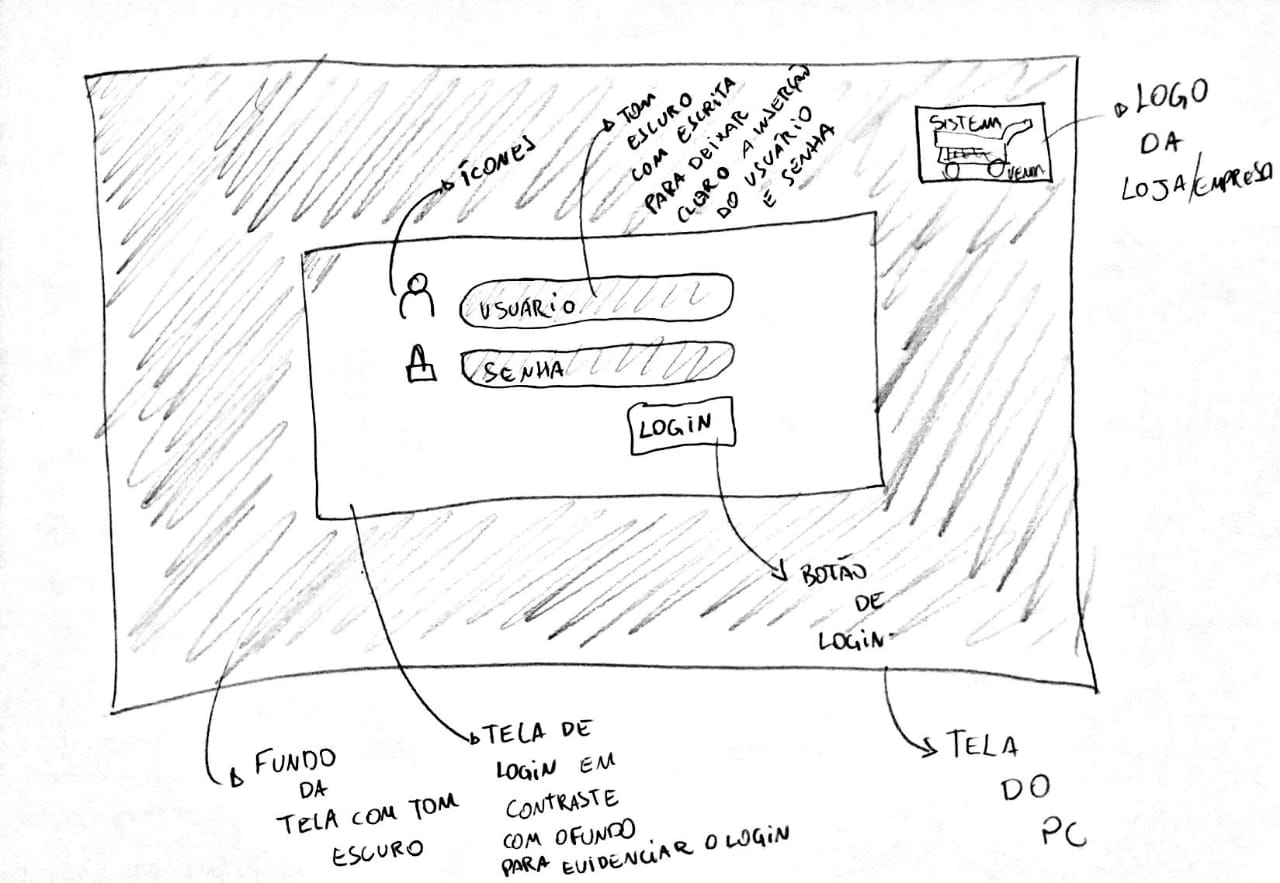 ÍCONES
TOM
ESCURO
COM ESCRITA
PARA DEIXAR
CLARO A INSERÇÃO
DO USUÁRIO
E SENHA
SISTEMA
VENDA
LOGO
DA
LOJA/EMPRESA
USUÁRIO
SENHA
LOGIN
BOTÃO
DE
LOGIN
FUNDO
DA
TELA COM TOM
ESCURO
TELA DE
LOGIN EM
CONTRASTE
COM O FUNDO
PARA EVIDENCIAR O LOGIN
TELA
DO
PC